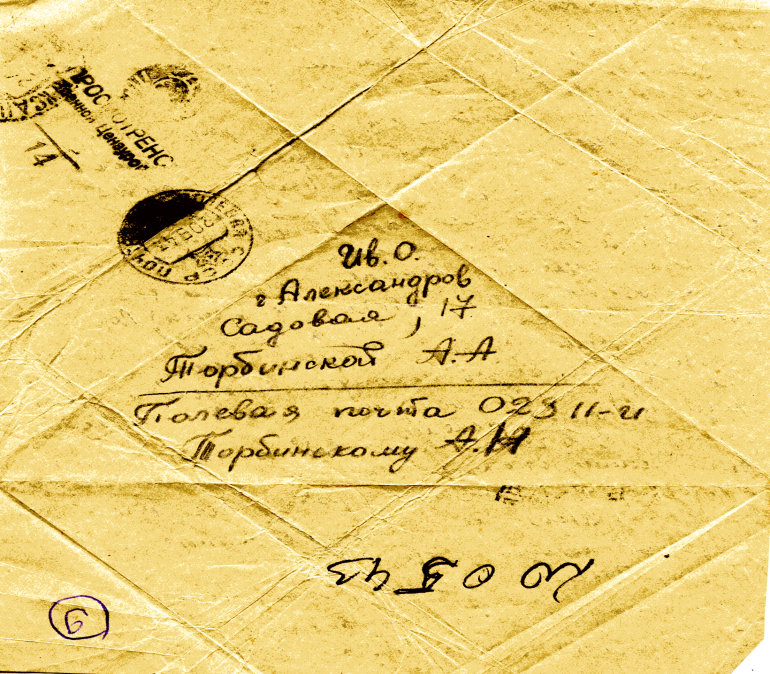 ПРОСМОТРЕНО
Военной Цензурой
14
Ив. О.
г Александров
Садовая, 17
Торбинской А.А
Полевая почта 02311-и
Торбинскому А.